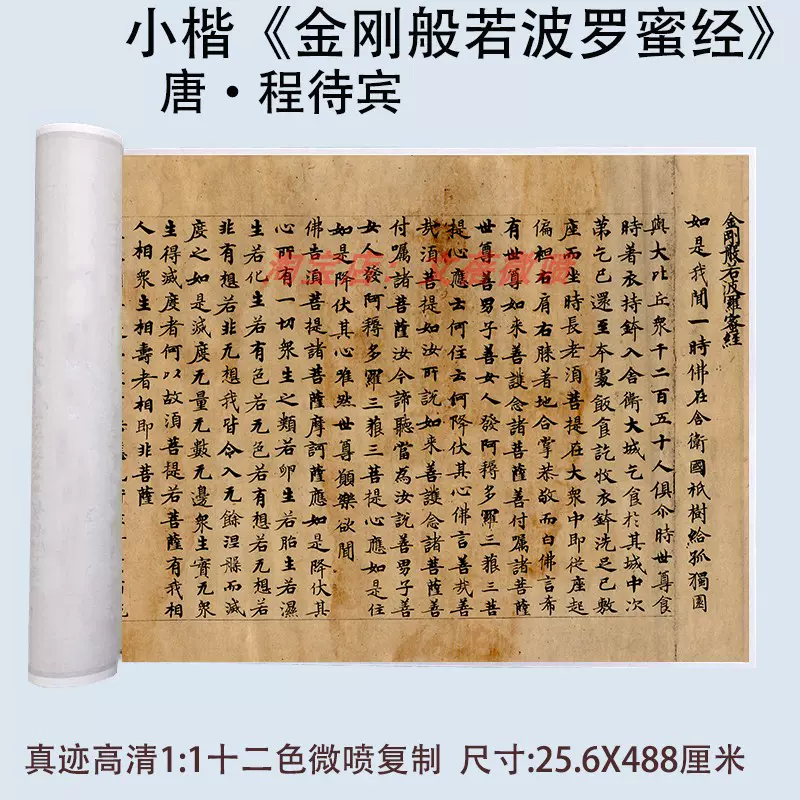 小楷《金刚般若波罗蜜经》
唐·程待宾
金剛般若波羅蜜經
如是我聞一時佛在舍衛國祇樹給孤獨園
與大比丘衆千二百五十人俱尒時世尊食
時着衣持鉢入舍衛大城乞食於其城中次
苐乞已還至本處飯食訖收衣鉢洗足已敷
座而坐時長老湏菩提在大衆中即從座起
偏袒右肩右膝着地合掌恭敬而白佛言希
有世尊如來善護念諸菩薩善付囑諸菩薩
世尊善男子善女人發阿耨多羅三藐三菩
提心應云何住云何降伏其心佛言善哉善
哉湏菩提如汝所說如來善護念諸菩薩善
付囑諸菩薩汝今諦聽當為汝說善男子善
女人發阿耨多羅三藐三菩提心應如是住
如是降伏其心唯然世尊願樂欲聞
佛告湏菩提諸菩薩摩訶薩應如是降伏其
心所有一切衆生之類若卵生若胎生若濕
生若化生若有色若无色若有想若无想若
非有想若非无想我皆令入无餘涅槃而滅
度之如是滅度无量无數无邊衆生實无衆
生得滅度者何以故湏菩提若菩薩有我相
人相衆生相壽者相即非菩薩
真迹高清1:1十二色微喷复制 尺寸:25.6X488厘米